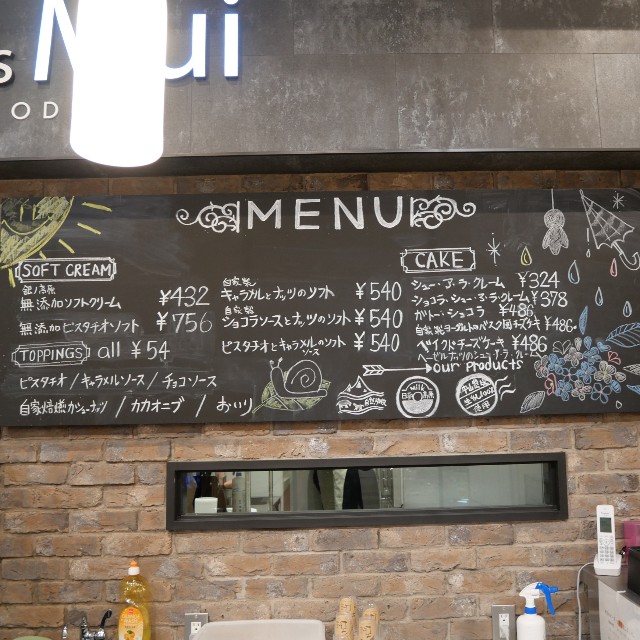 s Nui
OD
MENU
SOFT CREAM
無添加ソフトクリーム ¥432
無添加ピスタチオソフト ¥756
TOPPINGS all ¥54
ピスタチオ / キャラメルソース / チョコソース
自家焙煎カシューナッツ / カカオニブ / おいり
自家製
キャラメルとナッツのソフト ¥540
自家製
ショコラソースとナッツのソフト ¥540
ピスタチオとキャラメルのソフト ¥540
ソース
CAKE
シュー・ア・ラ・クレーム ¥324
ショコラ・シュー・ア・ラ・クレーム ¥378
ガトーショコラ ¥486
自家製ヨーグルトのバスク風チーズケーキ ¥486
ベイクドチーズケーキ ¥486
our products